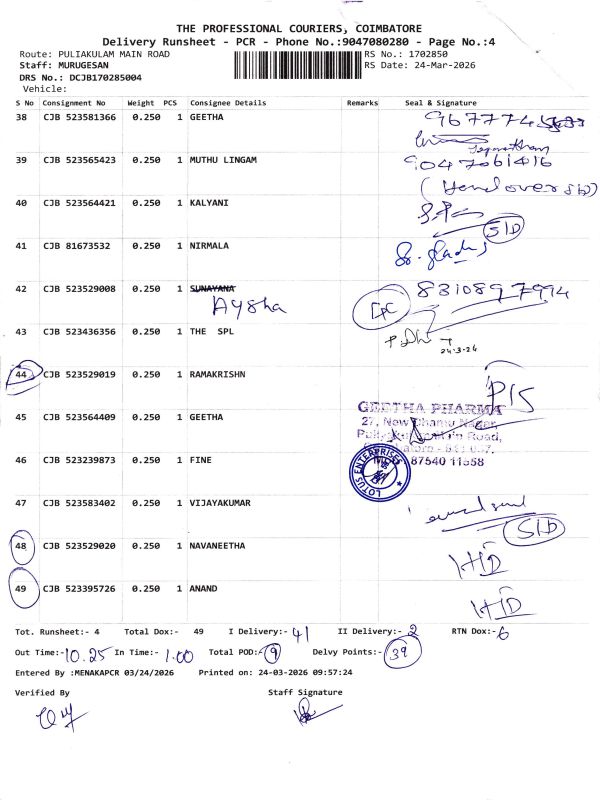 THE PROFESSIONAL COURIERS, COIMBATORE
Delivery Runsheet - PCR - Phone No.:9047080280 - Page No.:4
Route: PULIAKULAM MAIN ROAD RS No.: 1702850
Staff: MURUGESAN RS Date: 24-Mar-2026
DRS No.: DCJB170285004
Vehicle:
S No Consignment No Weight PCS Consignee Details Remarks Seal & Signature
38 CJB 523581366 0.250 1 GEETHA
39 CJB 523565423 0.250 1 MUTHU LINGAM 9047061416
(Handover SID)
40 CJB 523564421 0.250 1 KALYANI SID
41 CJB 81673532 0.250 1 NIRMALA
42 CJB 523529008 0.250 1 SUNAYANA 8310897994
Aysha
43 CJB 523436356 0.250 1 THE SPL
24-3-24
44 CJB 523529019 0.250 1 RAMAKRISHN P/S
GEETHA PHARMA
45 CJB 523564409 0.250 1 GEETHA
27, New Nagar,
Road,
87540 11558
46 CJB 523239873 0.250 1 FINE LOTUS ENTERPRISES
47 CJB 523583402 0.250 1 VIJAYAKUMAR
SID
48 CJB 523529020 0.250 1 NAVANEETHA HID
49 CJB 523395726 0.250 1 ANAND HID
Tot. Runsheet:- 4 Total Dox:- 49 I Delivery:- 41 II Delivery:- 2 RTN Dox:- 6
Out Time:- 10.25 In Time:- 1.00 Total POD:- 9 Delvy Points:- 39
Entered By :MENAKAPCR 03/24/2026 Printed on: 24-03-2026 09:57:24
Verified By Staff Signature